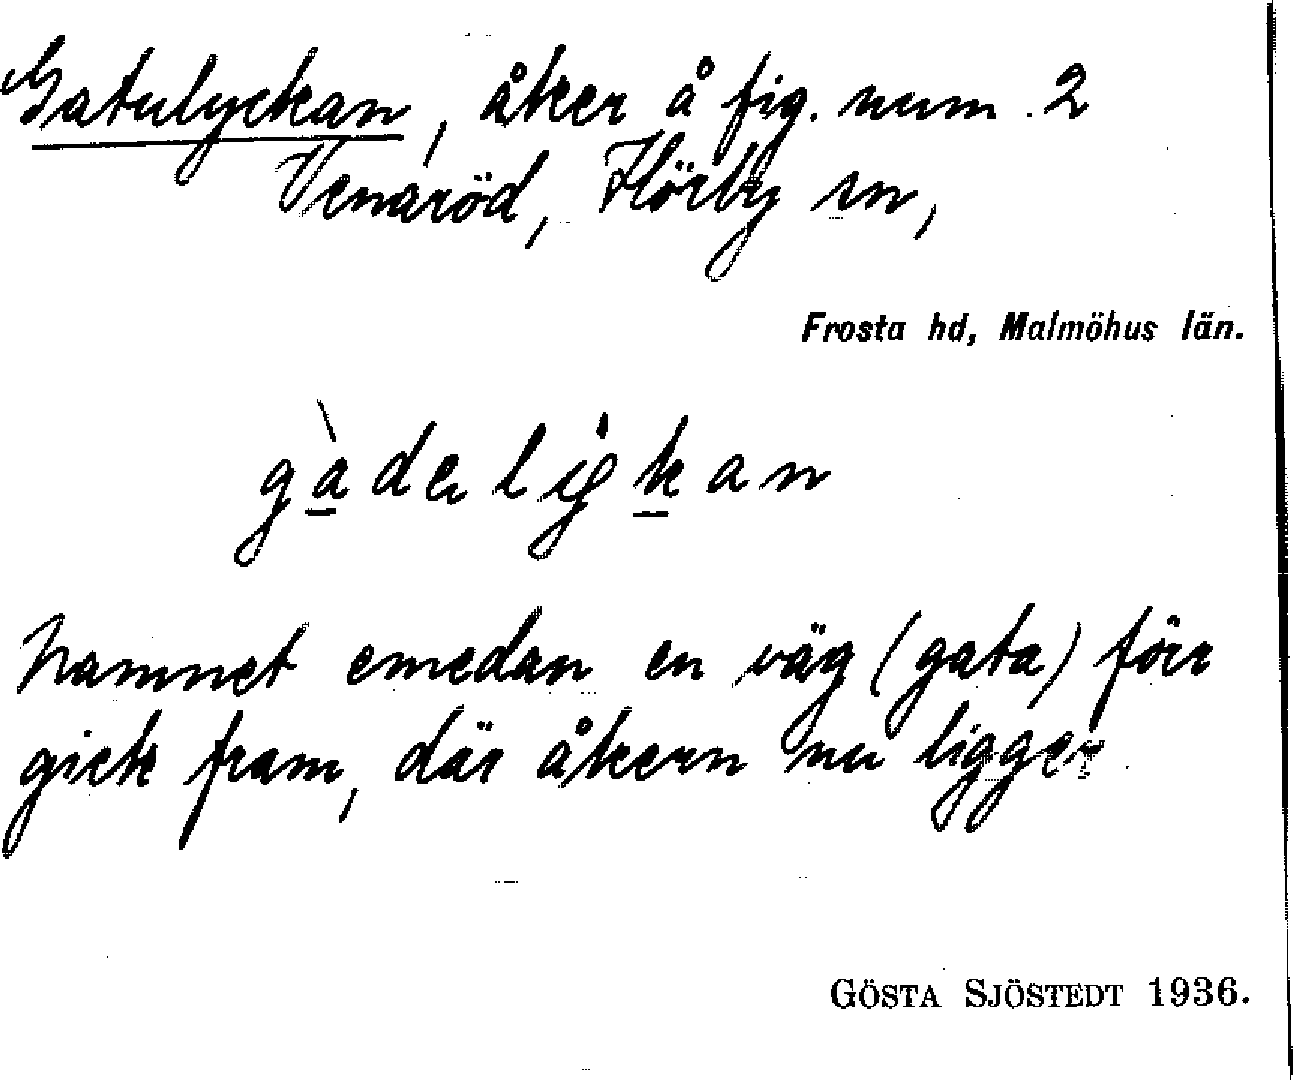 Gatulyckan, åker å fig. num. 2
Venaröd, Hörby sn,
Frosta hd, Malmöhus län.
gàdelykan
Namnet emedan en väg (gata) förr
gick fram, där åkern nu ligger.
GÖSTA SJÖSTEDT 1936.